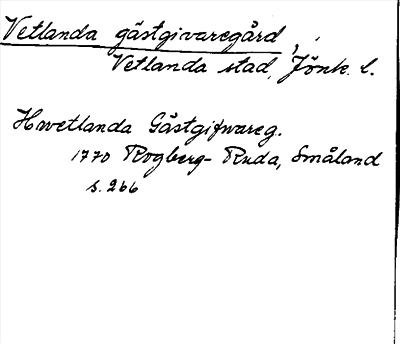 Vetlanda gästgivaregård,
Vetlanda stad, Jönk. l.
Hwetlanda Gästgifwareg.
1770 Rogberg-Ruda, Småland
s. 266